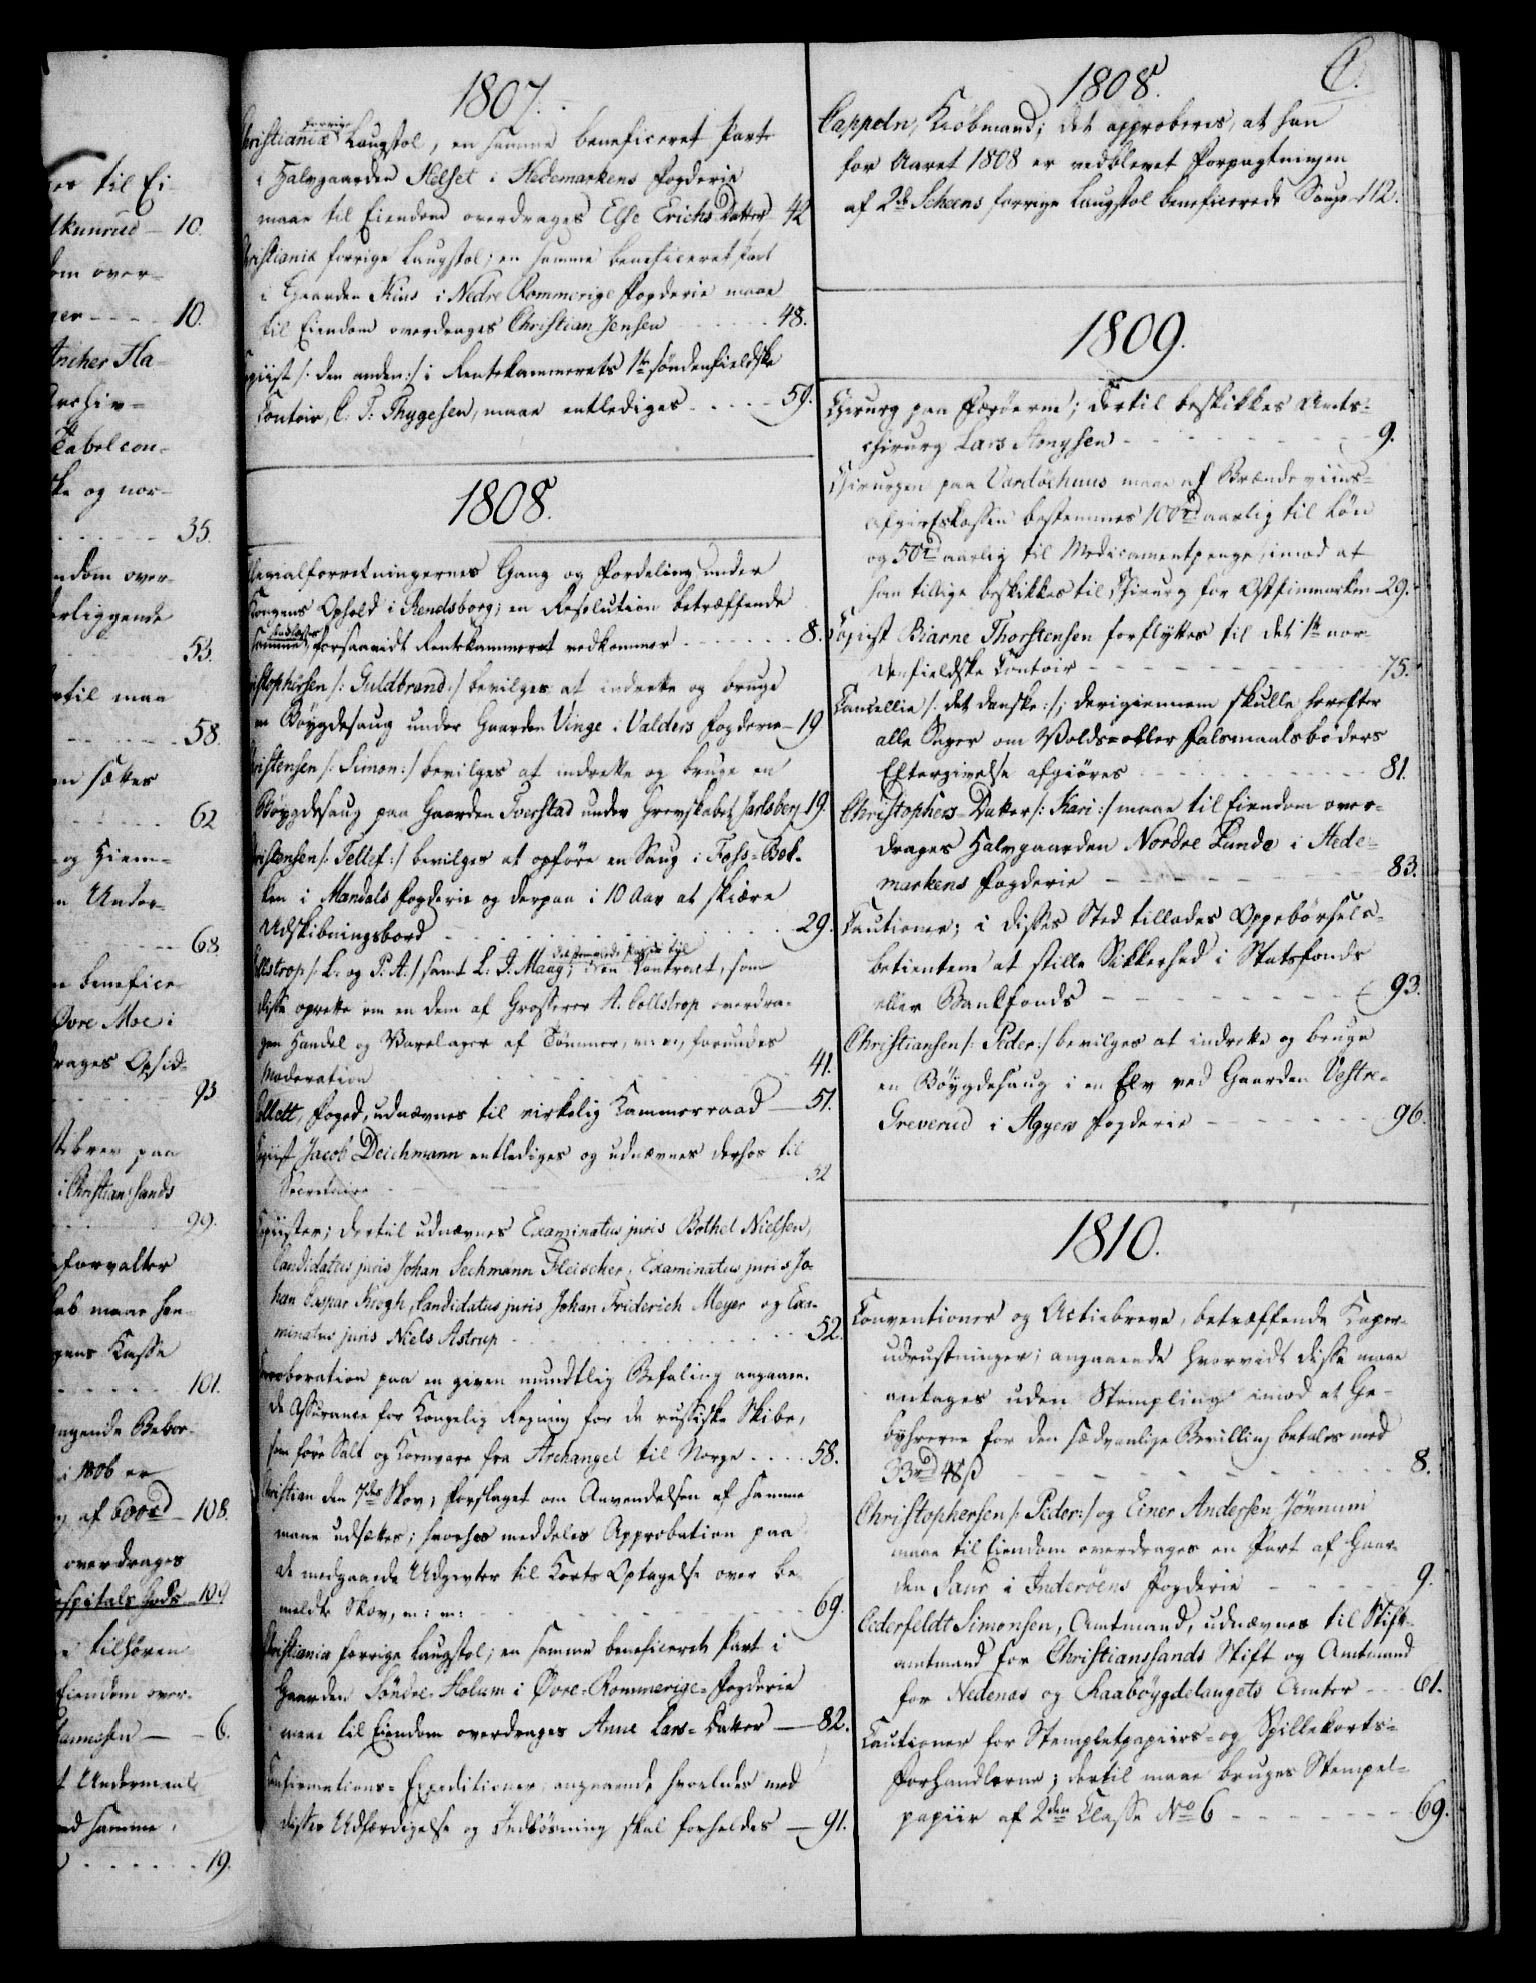 til Ei-
kunrud — 10.
dom over-
ger - - - - 10.
Ancher Ha-
Archiv-
Tabel con-
ske og nor-
- - - - - - 35.
endom over-
erliggende
53.
rtil maa
- - - - - 58.
en sættes
- - - - - 62
og Hiem-
n Under-
- - - 68.
e benefice-
Øvre Moe i
drages Opsid-
93
stebrev paa
i Christiansands
- - - 99.
forvalter
hab maae hen-
gens Kasse
- - - - - 101.
ngende Bebor-
i 1806 er
af 600 rd — 108.
overdrages
Hospitals Gods — 109
tilhören
Eiendom over-
Hannesen — 6.
t Undermaal
ed samme,
- - - - - - 19.
1807.
Christianiæ forrige Laugstol, en samme beneficeret Part
i Halvgaarden Helset i Hedemarkens Fogderie
maae til Eiendom overdrages Else Erichs Datter 42
Christianiæ forrige Laugstol; en samme beneficeret Part
i Gaarden Kius i Nedre Rommerige Fogderie maae
til Eiendom overdrages Christian Jensen - - - - - - 48.
Copiist /: den anden :/ i Rentekammerets 1te söndenfieldske
Contoir, C. T. Thygesen, maae entlediges - - - - - 59.
1808.
Collegialforretningernes Gang og Fordeling under
Kongens Ophold i Rendsborg; en Resolution betræffende
samme, forsaavidt Rentekammeret vedkommer - - - - - - 8.
Christophersen /: Guldbrand :/ bevilges at indrette og bruge
en Böygdesaug under Gaarden Vinge i Valders Fogderie — 19
Christensen /: Simon :/ bevilges at indrette og bruge en
Böygdesaug paa Gaarden Tverstad under Grevskabet Jarlsberg 19.
Christensen /: Tellef :/ bevilges at opföre en Saug i Foss-Bek-
ken i Mandals Fogderie og derpaa i 10 Aar at skiære
Udskibningsbord - - - - - - - - - - 29.
Collstrop /: L. og P. A. :/ samt L. J. Maag; det stemplede Papiir til den Contract, som
disse oprette om en dem af Grosserer A. Collstrop overdra-
gen Handel og Varelager af Tömmer, m. v., forundes
Moderation - - - - - - - - - 41.
Collett, Foged, udnævnes til virkelig Kammerraad — 51.
Copiist Jacob Deichmann entlediges og udnævnes derhos til
Secretaire - - - - - - - - - 52
Copiister; dertil udnævnes Examinatus juris Bothel Nielsen,
Candidatus juris Johan Sechmann Fleischer, Examinatus juris Jo-
han Caspar Krogh, Candidatus juris Johan Friderich Meyer og Exa-
minatus juris Niels Astrup - - - - - - - - 52.
Corroboration paa en given mundtlig Befaling angaaen-
de Assurance for Kongelig Regning for de russiske Skibe,
som före Salt og Kornvare fra Archangel til Norge - - - - 58.
Christian den 7des Skov; Forslaget om Anvendelsen af samme
maae udsættes; hvorhos meddeles Approbation paa
de medgaaede Udgivter til Korts Optagelse over be-
meldte Skov, m: m: - - - - - - - - - 69.
Christianiæ forrige Laugstol; en samme beneficeret Part i
Gaarden Söndre Holum i Øvre-Rommerige-Fogderie
maae til Eiendom overdrages Anne Lars-Datter — 82.
Confirmations-Expeditioner, angaaende hvorledes med
disses Udfærdigelse og Indlösning skal forholdes — 91.
1808.
1.
Cappeln, Kiöbmand; det approberes, at han
for Aaret 1808 er vedblevet Forpagtningen
af 2de Scheens forrige Laugstol beneficerede Sauge 112.
1809.
Chirurg paa Færöerne; dertil beskikkes Amts-
chirurg Lars - - - - - - - 9.
Chirurgen paa Vardöehuus maae af Brændeviins-
afgivtskassen bestemmes 100 rd aarlig til Lön
og 50 rd aarlig til Medicamentpenge, imod at
han tillige beskikkes til Chirurg for Ostfinmarken 29.
Copiist Biarne Thorstensen forflyttes til det 1te nor-
denfieldske Contoir - - - - - - - - - 75.
Cancellie /: det danske :/; derigiennem skulle herefter
alle Sager om Volds- eller Falsmaalsböders
Eftergivelse afgiöres - - - - - - - - 81.
Christophers-Datter /: Kari :/ maae til Eiendom over-
drages Halvgaarden Nordre Lunde i Hede-
markens Fogderie - - - - - - - 83.
Cautioner; i disses Sted tillades Oppebörsels-
betientene at stille Sikkerhed i Statsfonds
eller Bankfonds - - - - - - - - 93.
Christiansen /: Peder :/ bevilges at indrette og bruge
en Böygdesaug i en Elv ved Gaarden Vestre-
Greverud i Aggers Fogderie - - - - - - 96.
1810.
Conventioner og Actiebreve, betræffende Kaper-
udrustninger; angaaende hvorvidt disse maae
antages uden Stempling imod at Ge-
byhrerne for den sædvanlige Bevilling betales med
33 rd 48 ß - - - - - - - - - - 8.
Christophersen /: Peder :/ og Einer Andersen Jönnum
maae til Eiendom overdrages en Part af Gaar-
den Saur i Inderöens Fogderie - - - - - 9.
Cederfeldt Simonsen, Amtmand, udnævnes til Stift-
amtmand for Christianssands Stift og Amtmand
for Nedenæs og Raaböygdelaugets Amter - - - 61.
Cautioner for Stempletpapiirs- og Spillekorts-
Forhandlerne; dertil maae bruges Stempel-
papiir af 2den Classe No 6 - - - - - - - 69.